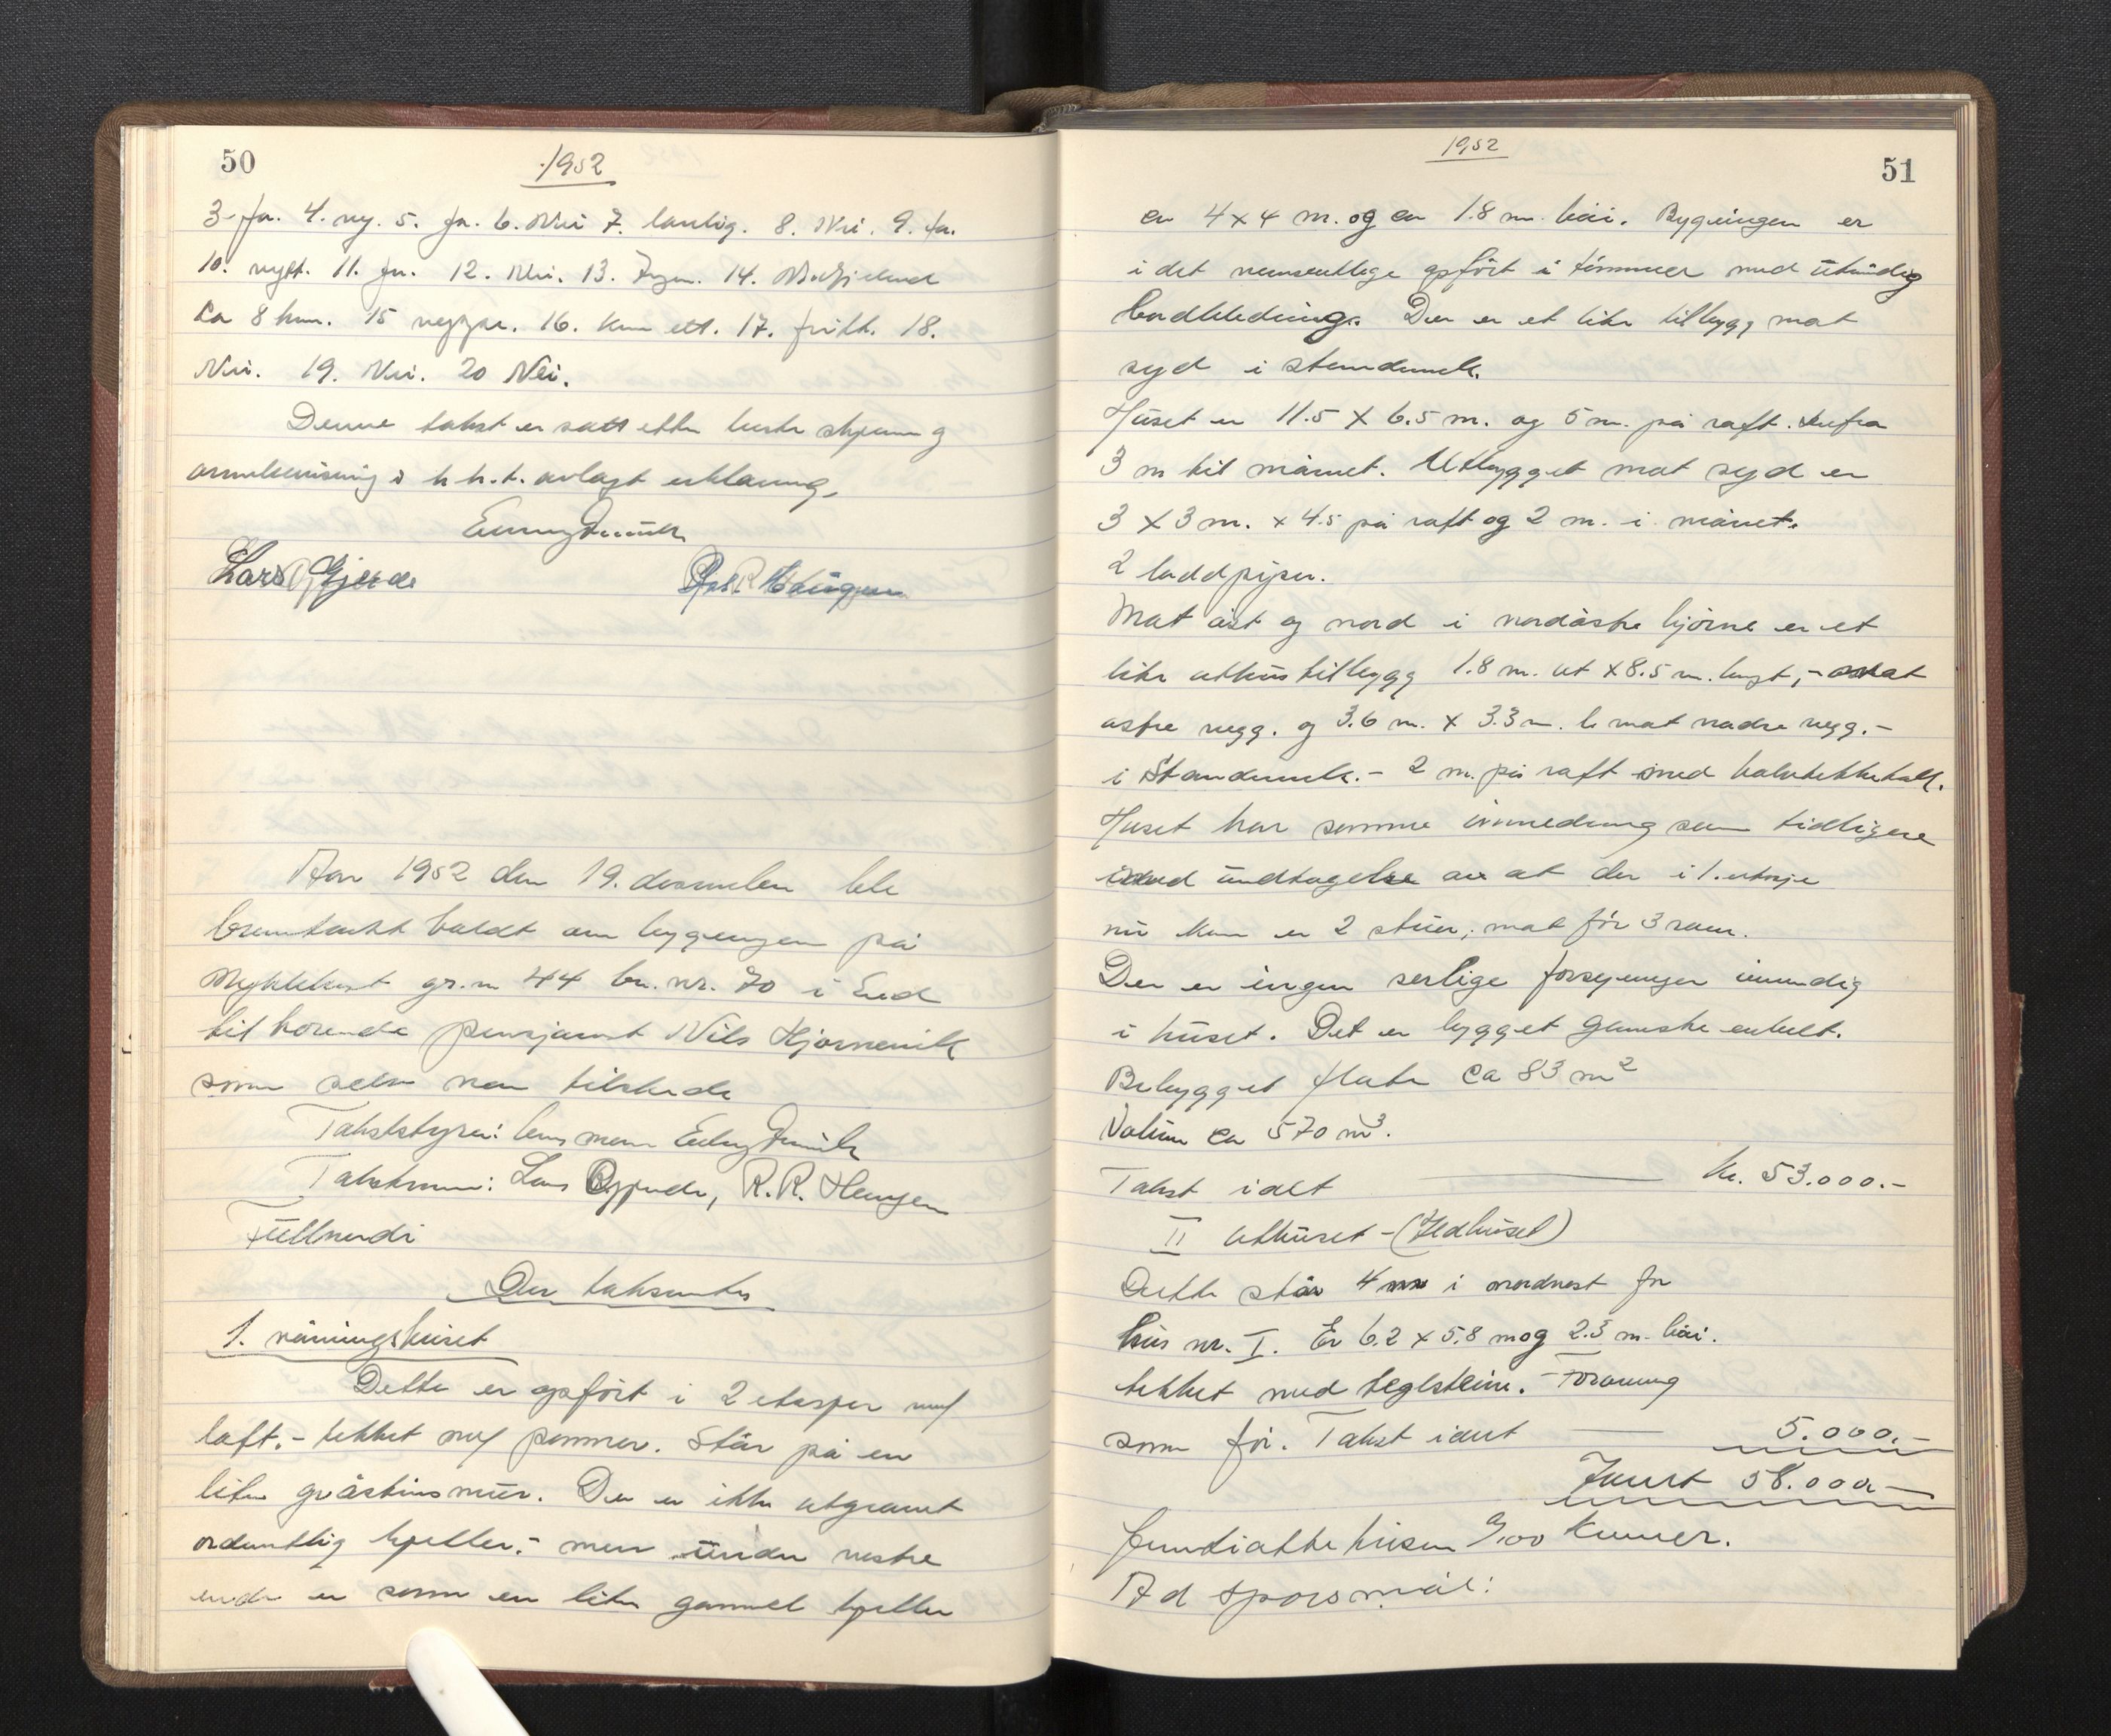 50
1952
3. Ja. 4. ny. 5. Ja. 6. Nei 7. lanlig. 8. Nei. 9. Ja.
10. nytt. 11. Ja. 12. Nei. 13. Ingen. 14.
ca 8 km. 15 neppe. 16. kun ett. 17. fritt. 18.
Nei. 19. Nei. 20 Nei.
Denne takst er satt etter beste skjønn og
overbevisning i h.h.t. avlagt erklæring.
Lars O Gjerde
R. Haugen
Aar 1952 den 19. desember ble
branntakst holdt over bygningen på
Myklebust gr.nr 44 br. nr. 70 i Eid
tilhørende pensjonist Nils Hjørnevik
som selv var tilstede
Takststyrer: lensmann
Takstmenn: Lars Gjerde, R. R. Haugen
Fullverdi
Der taksertes
1. våningshuset
Dette er opført i 2 etasjer med
loft. - tekket med panner. Står på en
liten gråsteinsmur. Der er ikke utgravet
ordentlig kjeller, - men under vestre
ende er som en liten gammel kjeller
1952
51
ca 4 x 4 m. og ca 1.8 m. høi. Bygningen er
i det vesentlige opført i tømmer med utvendig
bordkledning. Der er et lite tilbygg mot
syd i stenderverk.
Huset er 11.5 X 6.5 m. og 5 m. på raft. Derfra
3 m til mønet. Utbygget mot syd er
3 X 3 m. x 4.5 på raft og 2 m. i mønet.
2 loddpiper.
Mot øst og nord i nordøstre hjørne er et
lite uthustilbygg 1.8 m. ut x 8.5 m. langt, - mot
østre vegg. og 3.6 m. x 3.3 m. b. mot nordre vegg. -
i Standerverk. - 2 m. på raft med halvtekketak.
Huset har samme innredning som tidligere
med undtagelse av at der i 1. etasje
nu kun er 2 stuer, mot før 3 rom.
Der er ingen serlige forsyninger innvendig
i huset. Det er bygget ganske enkelt.
Bebygget flate ca 83 m2
Volum ca 570 m3.
Takst ialt kr. 53.000.-
II Uthuset - (Vedhuset)
Dette står 4 m i nordvest for
hus nr. I. Er 6.2 x 5.8 m og 2.3 m. høi.
tekket med teglsteine. -
som før. Takst ialt 5.000.-
58.000.-
Ad spørsmål: